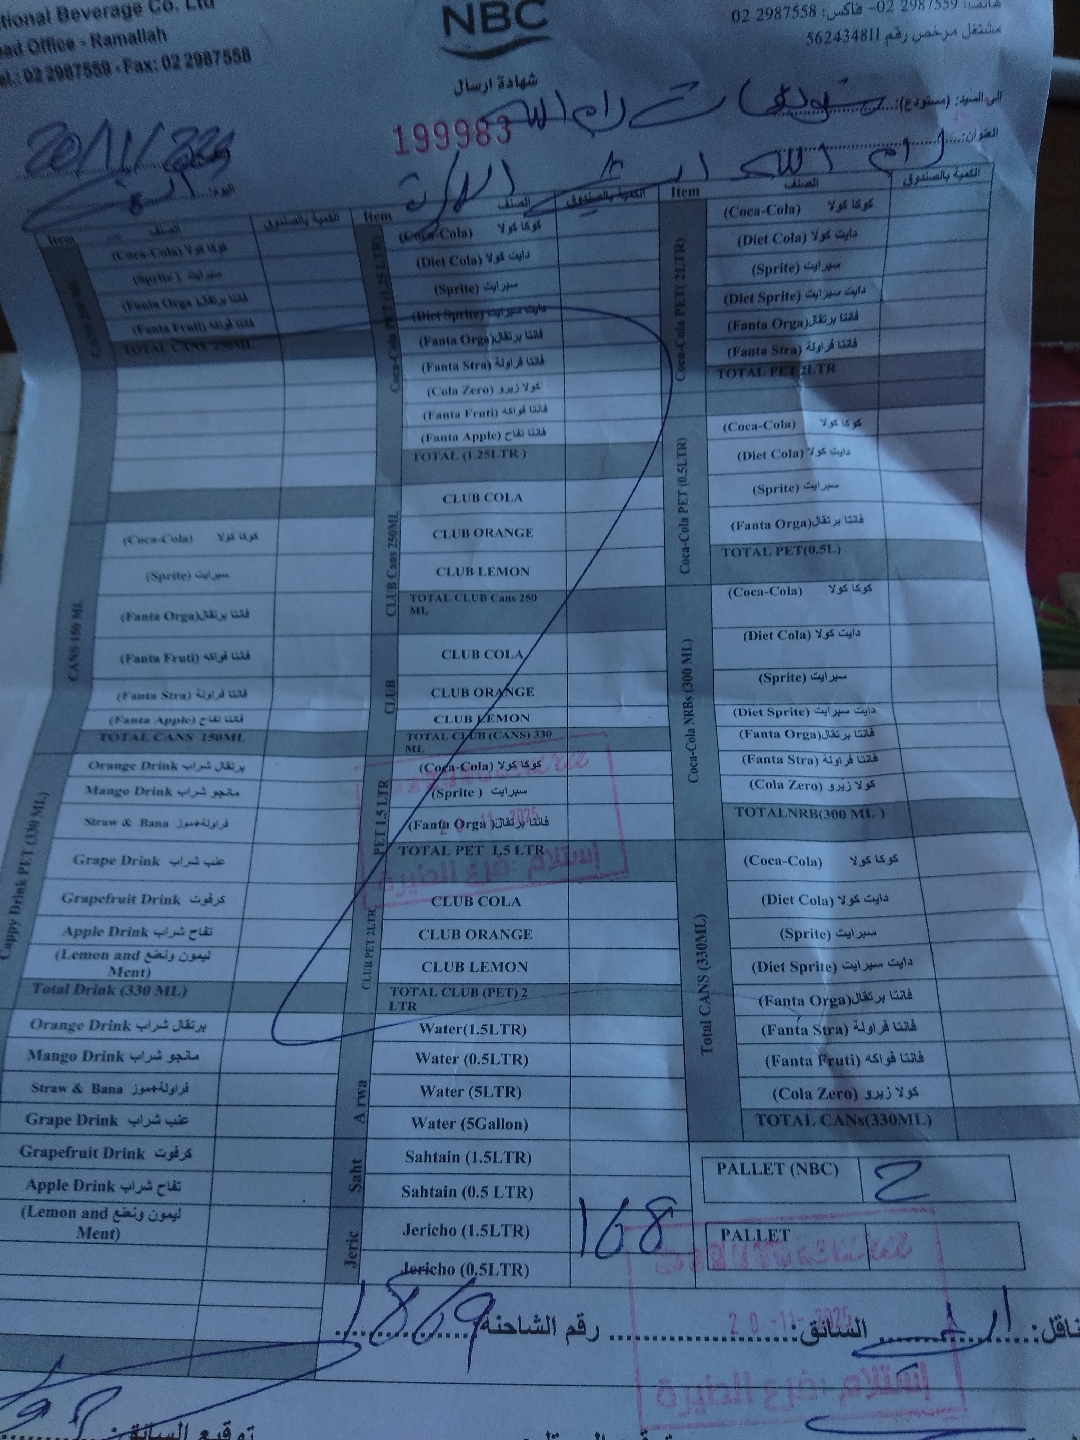 National Beverage Co. Ltd
Head Office - Ramallah
Tel.: 02 2987559 - Fax: 02 2987558
NBC
هاتف: 2987559 02– فاكس: 2987558 02
مشتغل مرخص رقم 562434811
شهادة ارسال
199983
الى السيد: (مستودع):
العنوان:
رام الله
اليوم:
Item الصنف الكمية بالصندوق
CANS 250 ML
(Coca-Cola) كوكا كولا
(Sprite) سبرايت
(Fanta Orga) فانتا برتقال
(Fanta Fruti) فانتا فواكه
TOTAL CANS 250ML
CANS 150 ML
(Coca-Cola) كوكا كولا
(Sprite) سبرايت
(Fanta Orga) فانتا برتقال
(Fanta Fruti) فانتا فواكه
(Fanta Stra) فانتا فراولة
(Fanta Apple) فانتا تفاح
TOTAL CANS 150ML
Cappy Drink PET (330 ML)
Orange Drink برتقال شراب
Mango Drink مانجو شراب
Straw & Bana فراولة+موز
Grape Drink عنب شراب
Grapefruit Drink كرفوت
Apple Drink تفاح شراب
(Lemon and ليمون ونعنع
Ment)
Total Drink (330 ML)
Orange Drink برتقال شراب
Mango Drink مانجو شراب
Straw & Bana فراولة+موز
Grape Drink عنب شراب
Grapefruit Drink كرفوت
Apple Drink تفاح شراب
(Lemon and ليمون ونعنع
Ment)
Item الصنف الكمية بالصندوق
Coca-Cola PET (1.25LTR)
(Coca-Cola) كوكا كولا
(Diet Cola) دايت كولا
(Sprite) سبرايت
(Diet Sprite) دايت سبرايت
(Fanta Orga) فانتا برتقال
(Fanta Stra) فانتا فراولة
(Cola Zero) كولا زيرو
(Fanta Fruti) فانتا فواكه
(Fanta Apple) فانتا تفاح
TOTAL (1.25LTR )
CLUB Cans 250ML
CLUB COLA
CLUB ORANGE
CLUB LEMON
TOTAL CLUB Cans 250
ML
CLUB
CLUB COLA
CLUB ORANGE
CLUB LEMON
TOTAL CLUB (CANS) 330
ML
PET 1.5 LTR
(Coca-Cola) كوكا كولا
(Sprite ) سبرايت
(Fanta Orga) فانتا برتقال
TOTAL PET 1.5 LTR
إستلام: فرع الطيرة
CLUB PET 2LTR
CLUB COLA
CLUB ORANGE
CLUB LEMON
TOTAL CLUB (PET) 2
LTR
Arwa
Water(1.5LTR)
Water (0.5LTR)
Water (5LTR)
Water (5Gallon)
Saht
Sahtain (1.5LTR)
Sahtain (0.5 LTR)
Jeric
Jericho (1.5LTR)
Jericho (0.5LTR)
168
Item الصنف الكمية بالصندوق
Coca-Cola PET( 2LTR)
(Coca-Cola) كوكا كولا
(Diet Cola) دايت كولا
(Sprite) سبرايت
(Diet Sprite) دايت سبرايت
(Fanta Orga) فانتا برتقال
(Fanta Stra) فانتا فراولة
TOTAL PET 2LTR
Coca-Cola PET (0.5LTR)
(Coca-Cola) كوكا كولا
(Diet Cola) دايت كولا
(Sprite) سبرايت
(Fanta Orga) فانتا برتقال
TOTAL PET(0.5L)
Coca-Cola NRBs (300 ML)
(Coca-Cola) كوكا كولا
(Diet Cola) دايت كولا
(Sprite) سبرايت
(Diet Sprite) دايت سبرايت
(Fanta Orga) فانتا برتقال
(Fanta Stra) فانتا فراولة
(Cola Zero) كولا زيرو
TOTALNRB(300 ML )
Total CANS (330ML)
(Coca-Cola) كوكا كولا
(Diet Cola) دايت كولا
(Sprite) سبرايت
(Diet Sprite) دايت سبرايت
(Fanta Orga) فانتا برتقال
(Fanta Stra) فانتا فراولة
(Fanta Fruti) فانتا فواكه
(Cola Zero) كولا زيرو
TOTAL CANs(330ML)
PALLET (NBC) 2
PALLET
السائق: رقم الشاحنة 1869
20 -11- 2025
إستلام: فرع الطيرة
توقيع السائق: